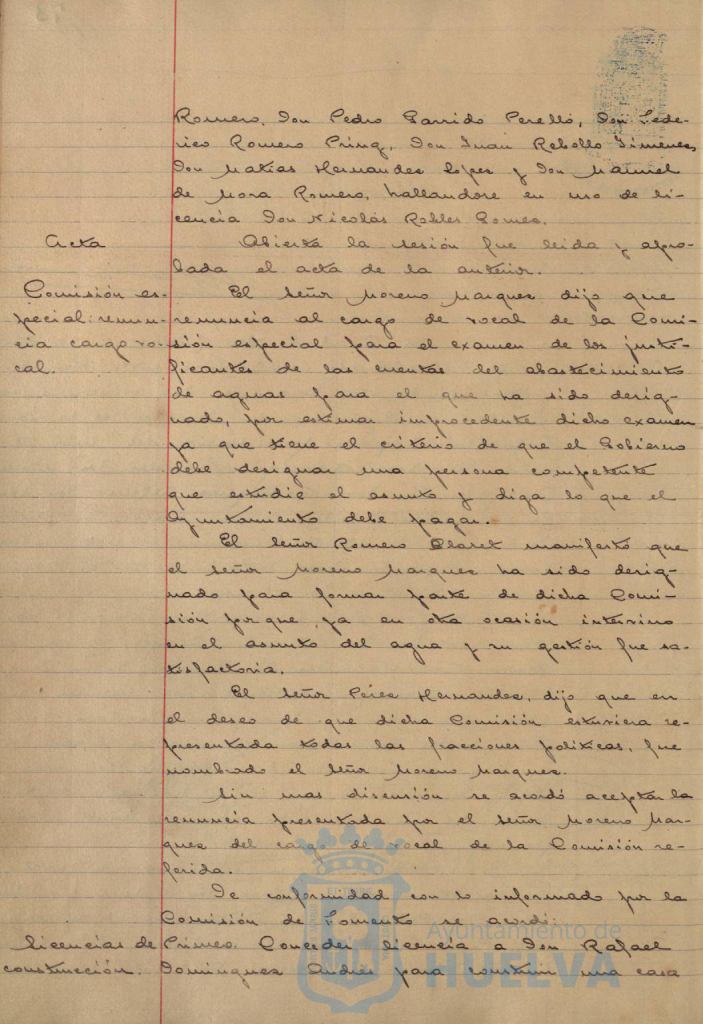 Romero, Don Pedro Garrido Perelló, Don Fede-
rico Romero Pring, Don Juan Rebollo Jimenez,
Don Matias Hernandez Lopez y Don Manuel
de Mora Romero, hallandose en uso de li-
cencia Don Nicolás Robles Gomez.
Acta
Abierta la sesión fue leida y apro-
bada el acta de la anterior.
Comisión es-
pecial: renun-
cia cargo vo-
cal.
El Señor Moreno Marquez dijo que
renuncia al cargo de vocal de la Comi-
sión especial para el examen de los justi-
ficantes de las cuentas del abastecimiento
de aguas para el que ha sido desig-
nado, por estimar improcedente dicho examen
ya que tiene el criterio de que el Gobierno
debe designar una persona competente
que estudie el asunto y diga lo que el
Ayuntamiento debe pagar.
El Señor Romero Claret manifestó que
el señor Moreno Marquez ha sido desig-
nado para formar parte de dicha Comi-
sión porque, ya en otra ocasión intervino
en el asunto del agua y su gestión fue sa-
tisfactoria.
El Señor Perez Hernandez, dijo que en
el deseo de que dicha Comisión estuviera re-
presentada todas las fracciones politicas, fue
nombrado el Señor Moreno Marquez.
Sin mas discusión se acordó aceptar la
renuncia presentada por el Señor Moreno Mar-
quez del cargo de vocal de la Comisión re-
ferida.
De conformidad con lo informado por la
Comisión de Fomento se acordó:
Licencias de
construcción.
Primero. Conceder licencia a Don Rafael
Dominguez Andrés para construir una casa
Ayuntamiento de
HUELVA